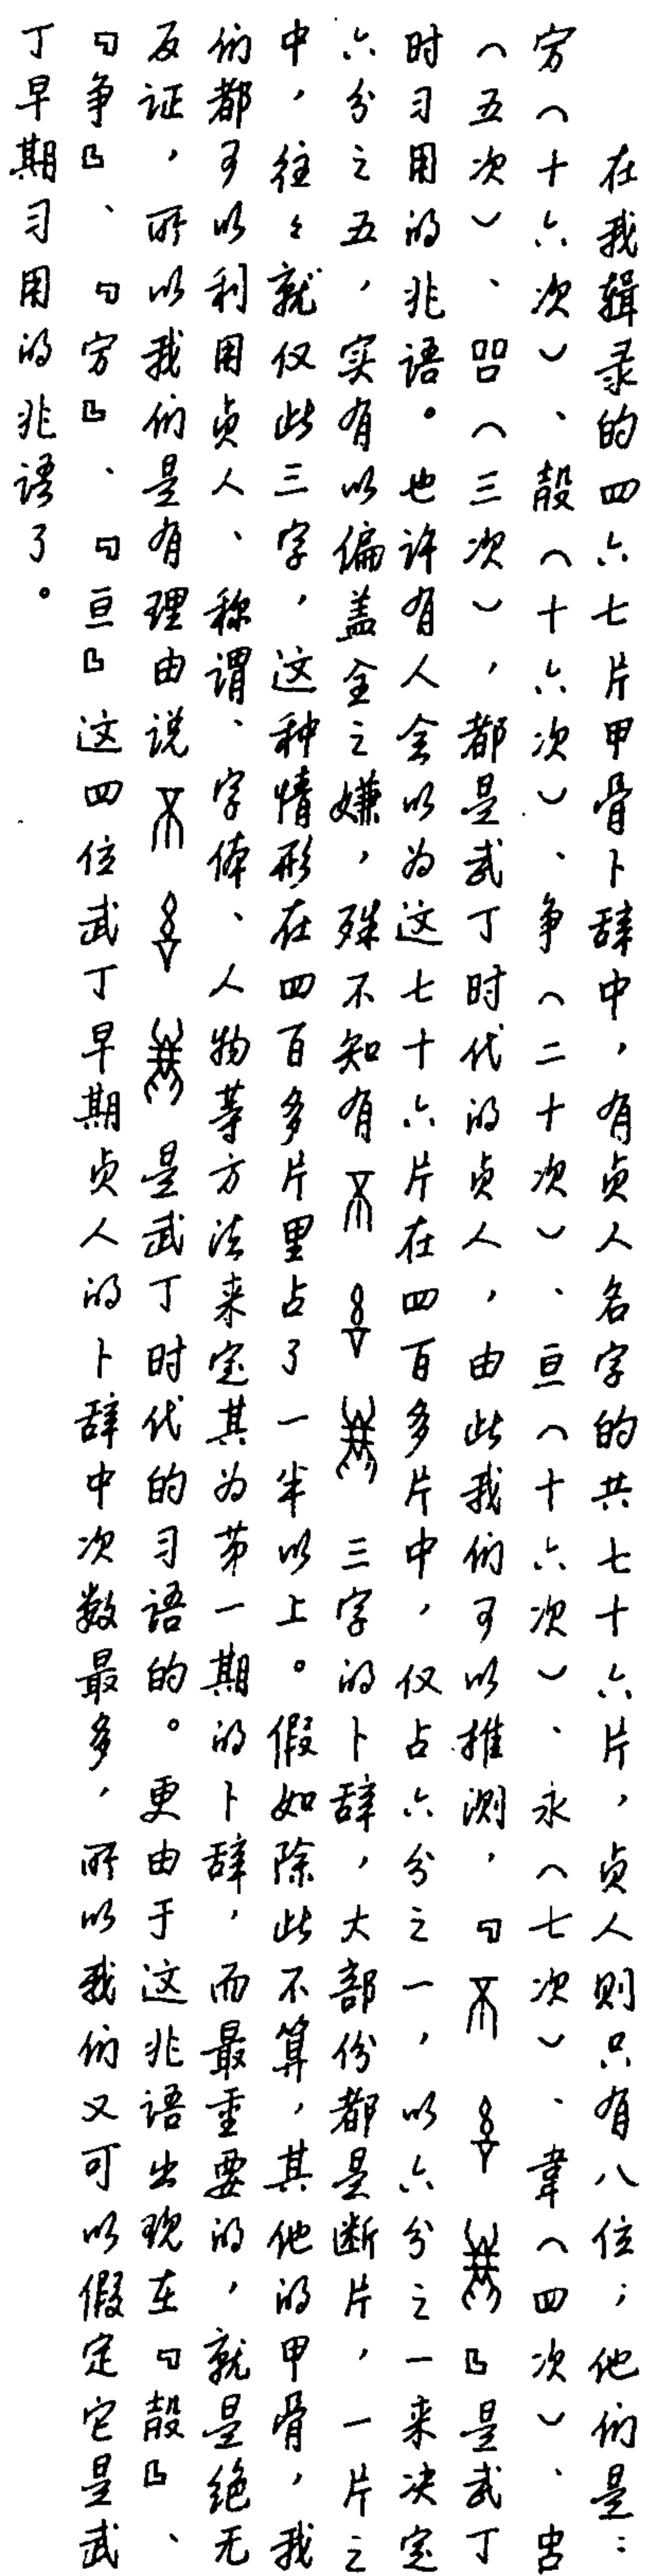 在我辑录的四六七片甲骨卜辞中，有贞人名字的共七十六片，贞人则只有八位；他们是：
（十六次）、㱿（十六次）、争（二十次）、亘（十六次）、永（七次）、韋（四次）、
（五次）、（三次），都是武丁时代的贞人，由此我们可以推测，『』是武丁
时习用的兆语。也许有人会以为这七十六片在四百多片中，仅占六分之一，以六分之一来决定
六分之五，实有以偏盖全之嫌，殊不知有三字的卜辞，大部份都是断片，一片之
中，往々就仅此三字，这种情形在四百多片里占了一半以上。假如除此不算，其他的甲骨，我
们都可以利用贞人、称谓、字体、人物等方法来定其为第一期的卜辞，而最重要的，就是绝无
反证，所以我们是有理由说是武丁时代的习语的。更由于这兆语出现在『㱿』、
『争』、『』、『亘』这四位武丁早期贞人的卜辞中次数最多，所以我们又可以假定它是武
丁早期习用的兆语了。